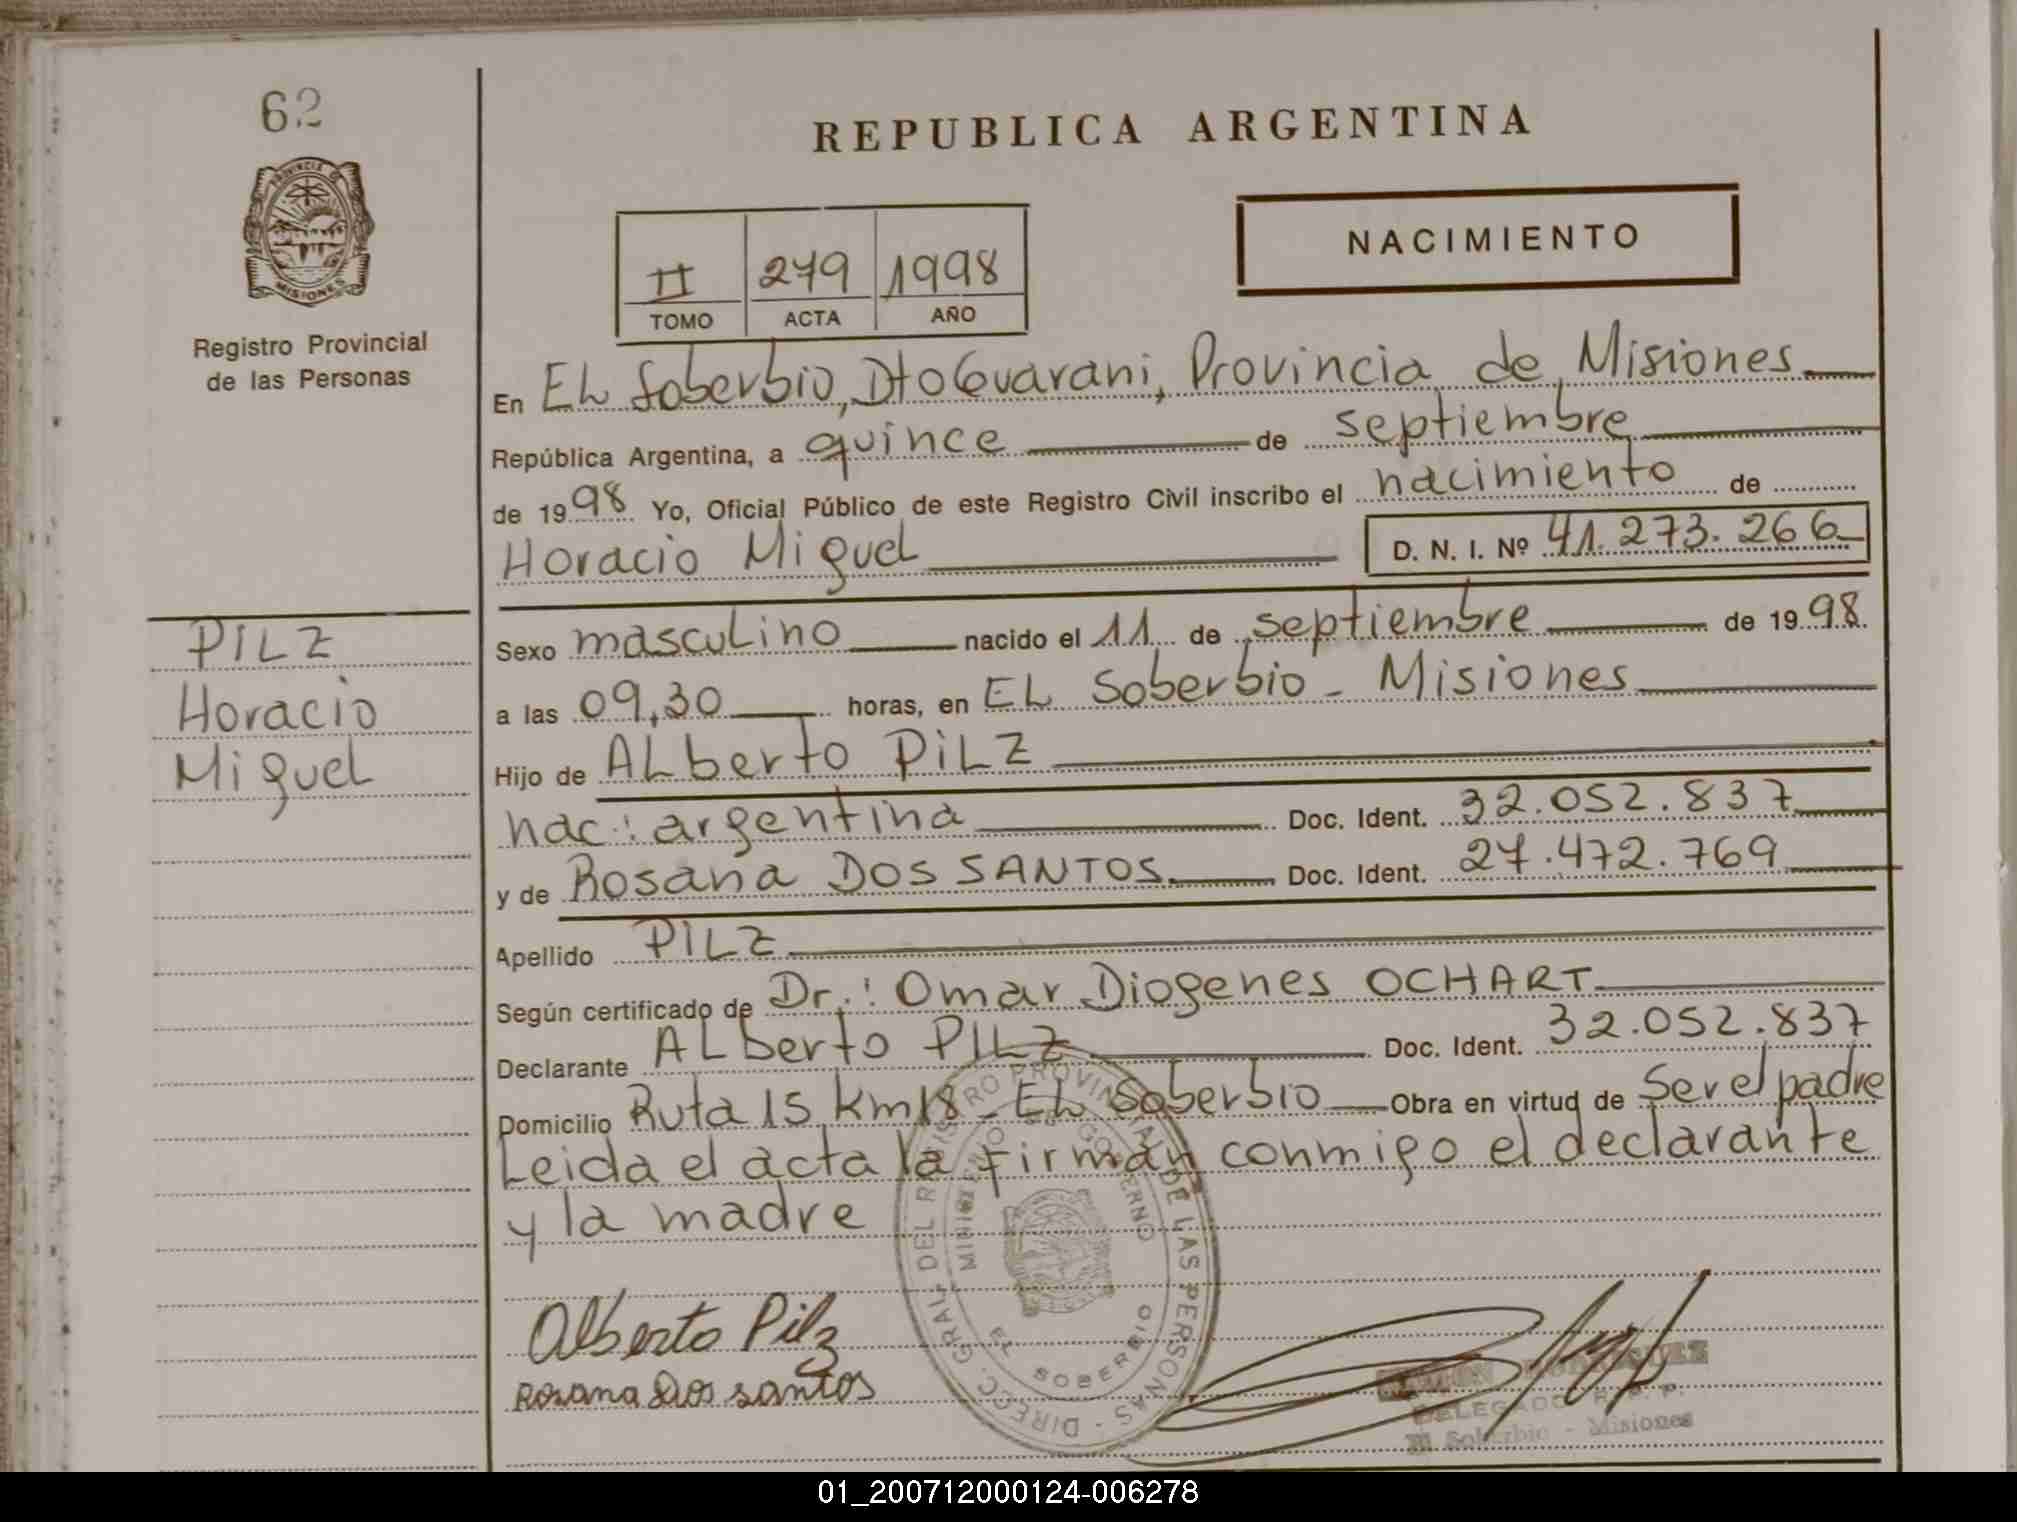 62
PROVINCIA DE
MISIONES
Registro Provincial
de las Personas
REPUBLICA ARGENTINA
NACIMIENTO
II 279 1998
TOMO ACTA AÑO
En EL Soberbio, Dto Guarani, Provincia de Misiones
República Argentina, a quince de septiembre
de 1998 Yo, Oficial Público de este Registro Civil inscribo el nacimiento de
Horacio Miguel D. N. I. Nº 41.273.266
PILZ
Horacio
Miguel
Sexo masculino nacido el 11 de septiembre de 1998
a las 09,30 horas, en EL Soberbio - Misiones
Hijo de ALberto PiLZ
nac: argentina Doc. Ident. 32.052.837
y de Rosana DOS SANTOS Doc. Ident. 27.472.769
Apellido PILZ
Según certificado de Dr.: Omar Diogenes OCHART
Declarante ALberto PILZ Doc. Ident. 32.052.837
Domicilio Ruta 15 km18 - EL Soberbio Obra en virtud de Ser el padre
Leida el acta la firman conmigo el declarante
y la madre
DIRECC. GRAL. DEL REGISTRO PROVINCIAL DE LAS PERSONAS
MINISTERIO DE GOBIERNO
EL SOBERBIO
Alberto Pilz
Rosana Dos santos
RODRIGUEZ
DELEGADO R. P. P.
El Soberbio - Misiones
01_200712000124-006278